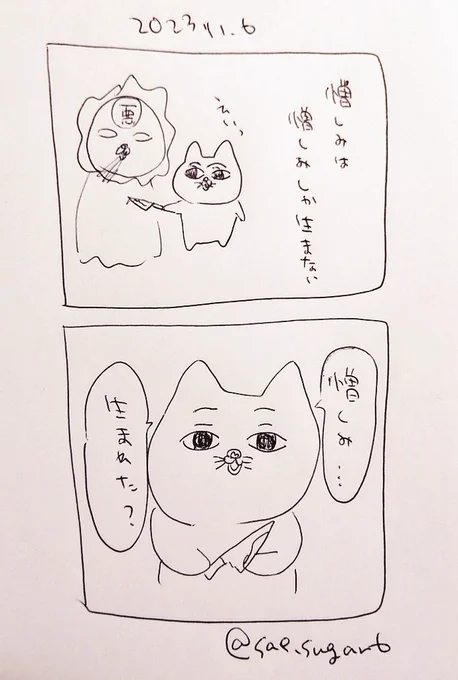 2023.11.6
憎しみは
憎しみしか生まない
えいっ
悪
憎しみ…
生まれた？
@sae.sugar6